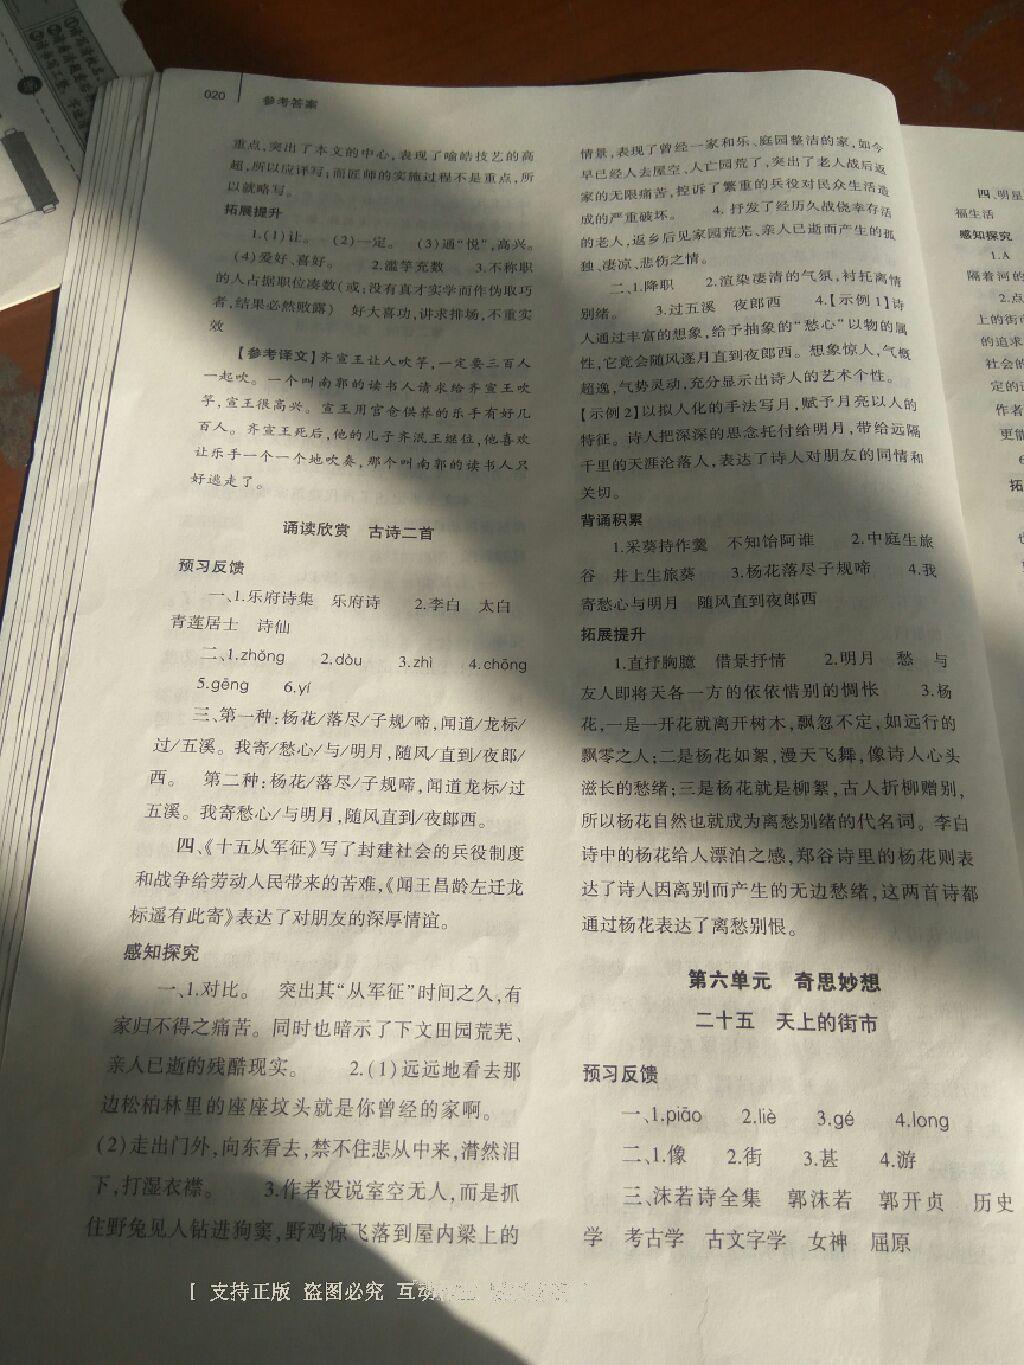 020
参考答案
重点,突出了本文的中心,表现了喻皓技艺的高
超,所以应详写;而匠师的实施过程不是重点,所
以就略写。
拓展提升
1.(1)让。 (2)一定。 (3)通“悦”,高兴。
(4)爱好、喜好。 2.滥竽充数 3.不称职
的人占据职位凑数(或:没有真才实学而作伪取巧
者,结果必然败露) 好大喜功,讲求排场,不重实
效
【参考译文】齐宣王让人吹竽,一定要三百人
一起吹。一个叫南郭的读书人请求给齐宣王吹
竽,宣王很高兴。宣王用官仓供养的乐手有好几
百人。齐宣王死后,他的儿子齐泯王继位,他喜欢
让乐手一个一个地吹奏,那个叫南郭的读书人只
好逃走了。
诵读欣赏 古诗二首
预习反馈
一、1.乐府诗集 乐府诗 2.李白 太白
青莲居士 诗仙
二、1.zhǒng 2.dòu 3.zhì 4.chōng
5.gēng 6.yí
三、第一种:杨花/落尽/子规/啼,闻道/龙标/
过/五溪。我寄/愁心/与/明月,随风/直到/夜郎/
西。 第二种:杨花/落尽/子规啼,闻道龙标/过
五溪。我寄愁心/与明月,随风直到/夜郎西。
四、《十五从军征》写了封建社会的兵役制度
和战争给劳动人民带来的苦难,《闻王昌龄左迁龙
标遥有此寄》表达了对朋友的深厚情谊。
感知探究
一、1.对比。 突出其“从军征”时间之久,有
家归不得之痛苦。同时也暗示了下文田园荒芜、
亲人已逝的残酷现实。 2.(1)远远地看去那
边松柏林里的座座坟头就是你曾经的家啊。
(2)走出门外,向东看去,禁不住悲从中来,潸然泪
下,打湿衣襟。 3.作者没说室空无人,而是抓
住野兔见人钻进狗窦,野鸡惊飞落到屋内梁上的
情景,表现了曾经一家和乐、庭园整洁的家,如今
早已经人去屋空、人亡园荒了,突出了老人战后返
家的无限痛苦,控诉了繁重的兵役对民众生活造
成的严重破坏。 4.抒发了经历久战侥幸存活
的老人,返乡后见家园荒芜、亲人已逝而产生的孤
独、凄凉、悲伤之情。
二、1.降职 2.渲染凄清的气氛,衬托离情
别绪。 3.过五溪 夜郎西 4.【示例1】诗
人通过丰富的想象,给予抽象的“愁心”以物的属
性,它竟会随风逐月直到夜郎西。想象惊人,气概
超逸,气势灵动,充分显示出诗人的艺术个性。
【示例2】以拟人化的手法写月,赋予月亮以人的
特征。诗人把深深的思念托付给明月,带给远隔
千里的天涯沦落人,表达了诗人对朋友的同情和
关切。
背诵积累
1.采葵持作羹 不知饴阿谁 2.中庭生旅
谷 井上生旅葵 3.杨花落尽子规啼 4.我
寄愁心与明月 随风直到夜郎西
拓展提升
1.直抒胸臆 借景抒情 2.明月 愁 与
友人即将天各一方的依依惜别的惆怅 3.杨
花,一是一开花就离开树木,飘忽不定,如远行的
飘零之人;二是杨花如絮,漫天飞舞,像诗人心头
滋长的愁绪;三是杨花就是柳絮,古人折柳赠别,
所以杨花自然也就成为离愁别绪的代名词。李白
诗中的杨花给人漂泊之感,郑谷诗里的杨花则表
达了诗人因离别而产生的无边愁绪,这两首诗都
通过杨花表达了离愁别恨。
第六单元 奇思妙想
二十五 天上的街市
预习反馈
一、1.piāo 2.liè 3.gé 4.long
二、1.像 2.街 3.甚 4.游
三、沫若诗全集 郭沫若 郭开贞 历史
学 考古学 古文字学 女神 屈原
四、明星
福生活
感知探究
1.A
隔着河的
2.点
上的街市
的追求
社会的
定的
作者
更能
拓
[ 支持正版 盗图必究 互动